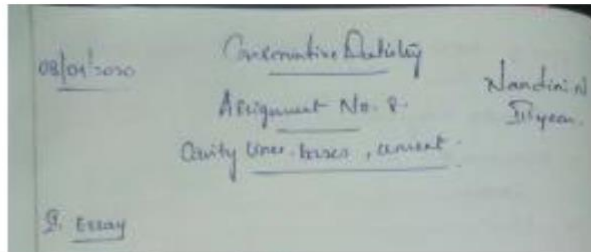 08/01/2020
Conservative Dentistry
Nandini.N
III year.
Assignment No. 8.
Cavity liner. bases, cement.
I. Essay